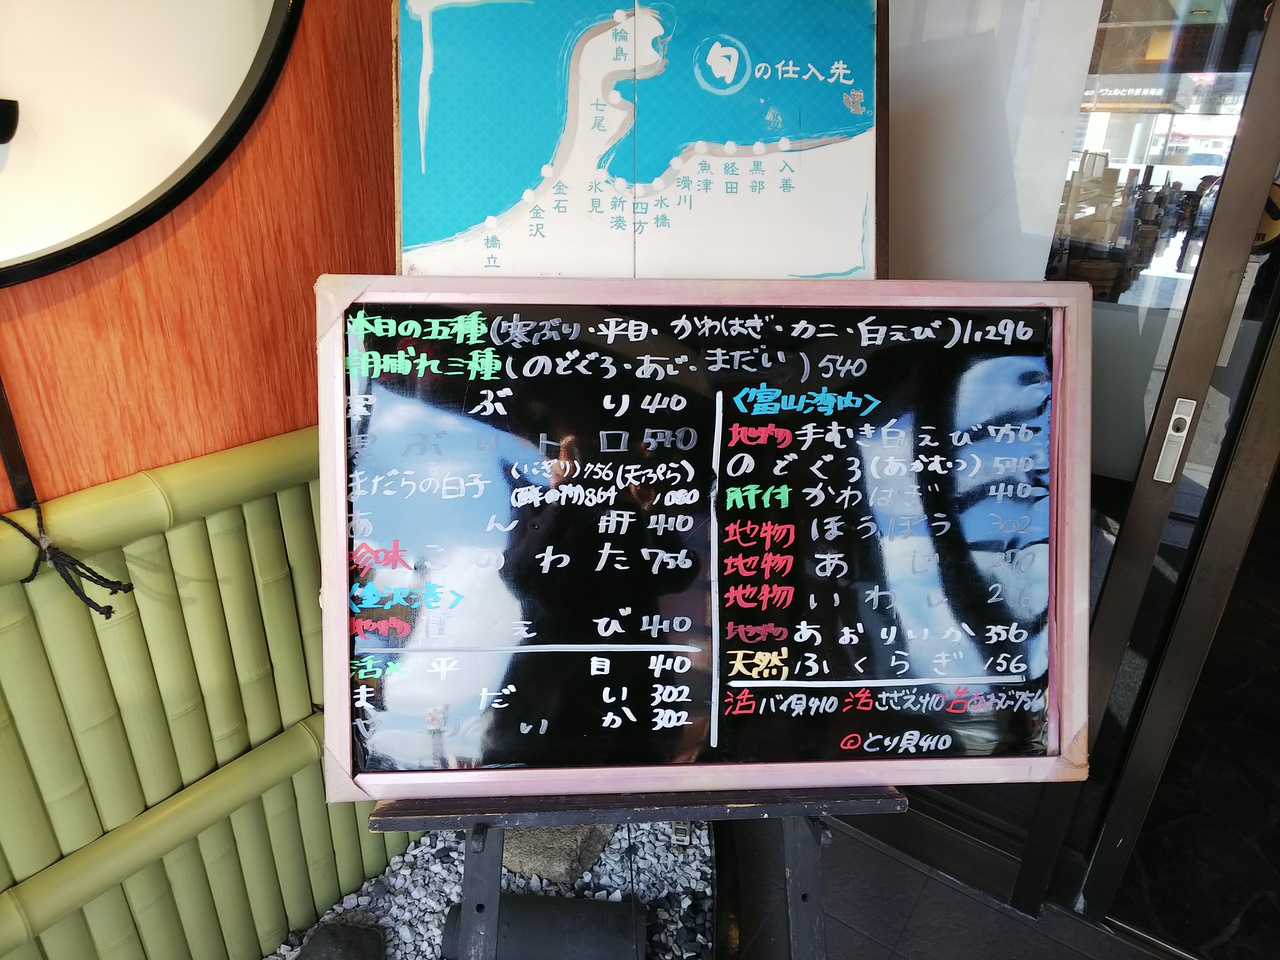 旬の仕入先
輪島
七尾
金石
金沢
橋立
氷見
新湊
四方
水橋
滑川
魚津
経田
黒部
入善
本日の五種(寒ぶり・平目・かわはぎ・カニ・白えび)1,296
朝捕れ三種(のどぐろ・あじ・まだい)540
寒ぶり 410
寒ぶりトロ 540
まだらの白子 (にぎり)756 (天ぷら)
(酢の物)864 1080
あん肝 410
珍味 このわた 756
〈金沢港〉
地物 白えび 410
活〆 平目 410
まだい 302
やりいか 302
〈富山湾内〉
地物 手むき白えび 756
のどぐろ(あかむつ) 540
肝付 かわはぎ 410
地物 ほうぼう 302
地物 あじ
地物 いわし
地物 あおりいか 356
天然 ふくらぎ 156
活バイ貝410 活さざえ410 活あわび756
とり貝410